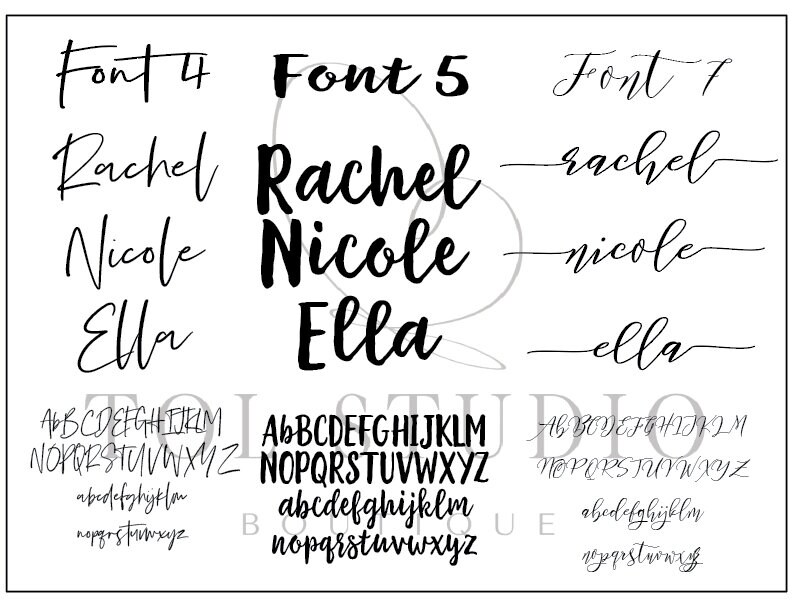 Font 4
Rachel
Nicole
Ella
AbBCDEFGHIJKLM
NOPQRSTUVWXYZ
abcdefghijklm
nopqrstuvwxyz
Font 5
Rachel
Nicole
Ella
AbBCDEFGHIJKLM
NOPQRSTUVWXYZ
abcdefghijklm
nopqrstuvwxyz
Font 7
rachel
nicole
ella
ABCDEFGHIJKLM
NOPQRSTUVWXYZ
abcdefghijklm
nopqrstuvwxyz
TOL STUDIO
BOUTIQUE